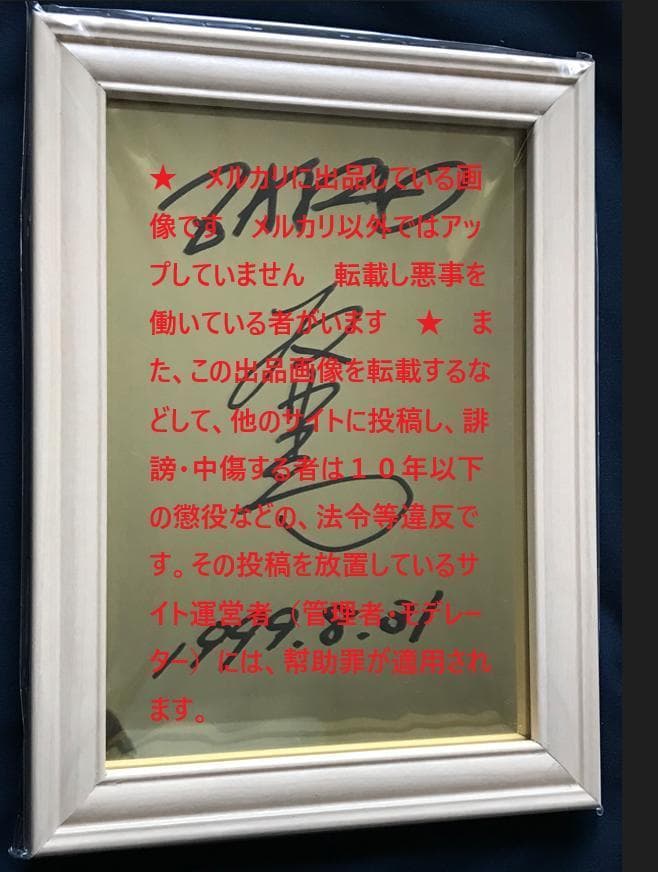 ZARD
★　メルカリに出品している画
像です　メルカリ以外ではアッ
プしていません　転載し悪事を
働いている者がいます　★　ま
た、この出品画像を転載するな
どして、他のサイトに投稿し、誹
謗・中傷する者は１０年以下
の懲役などの、法令等違反で
す。その投稿を放置しているサ
イト運営者（管理者・モデレー
ター）には、幇助罪が適用され
ます。
1999.8.31